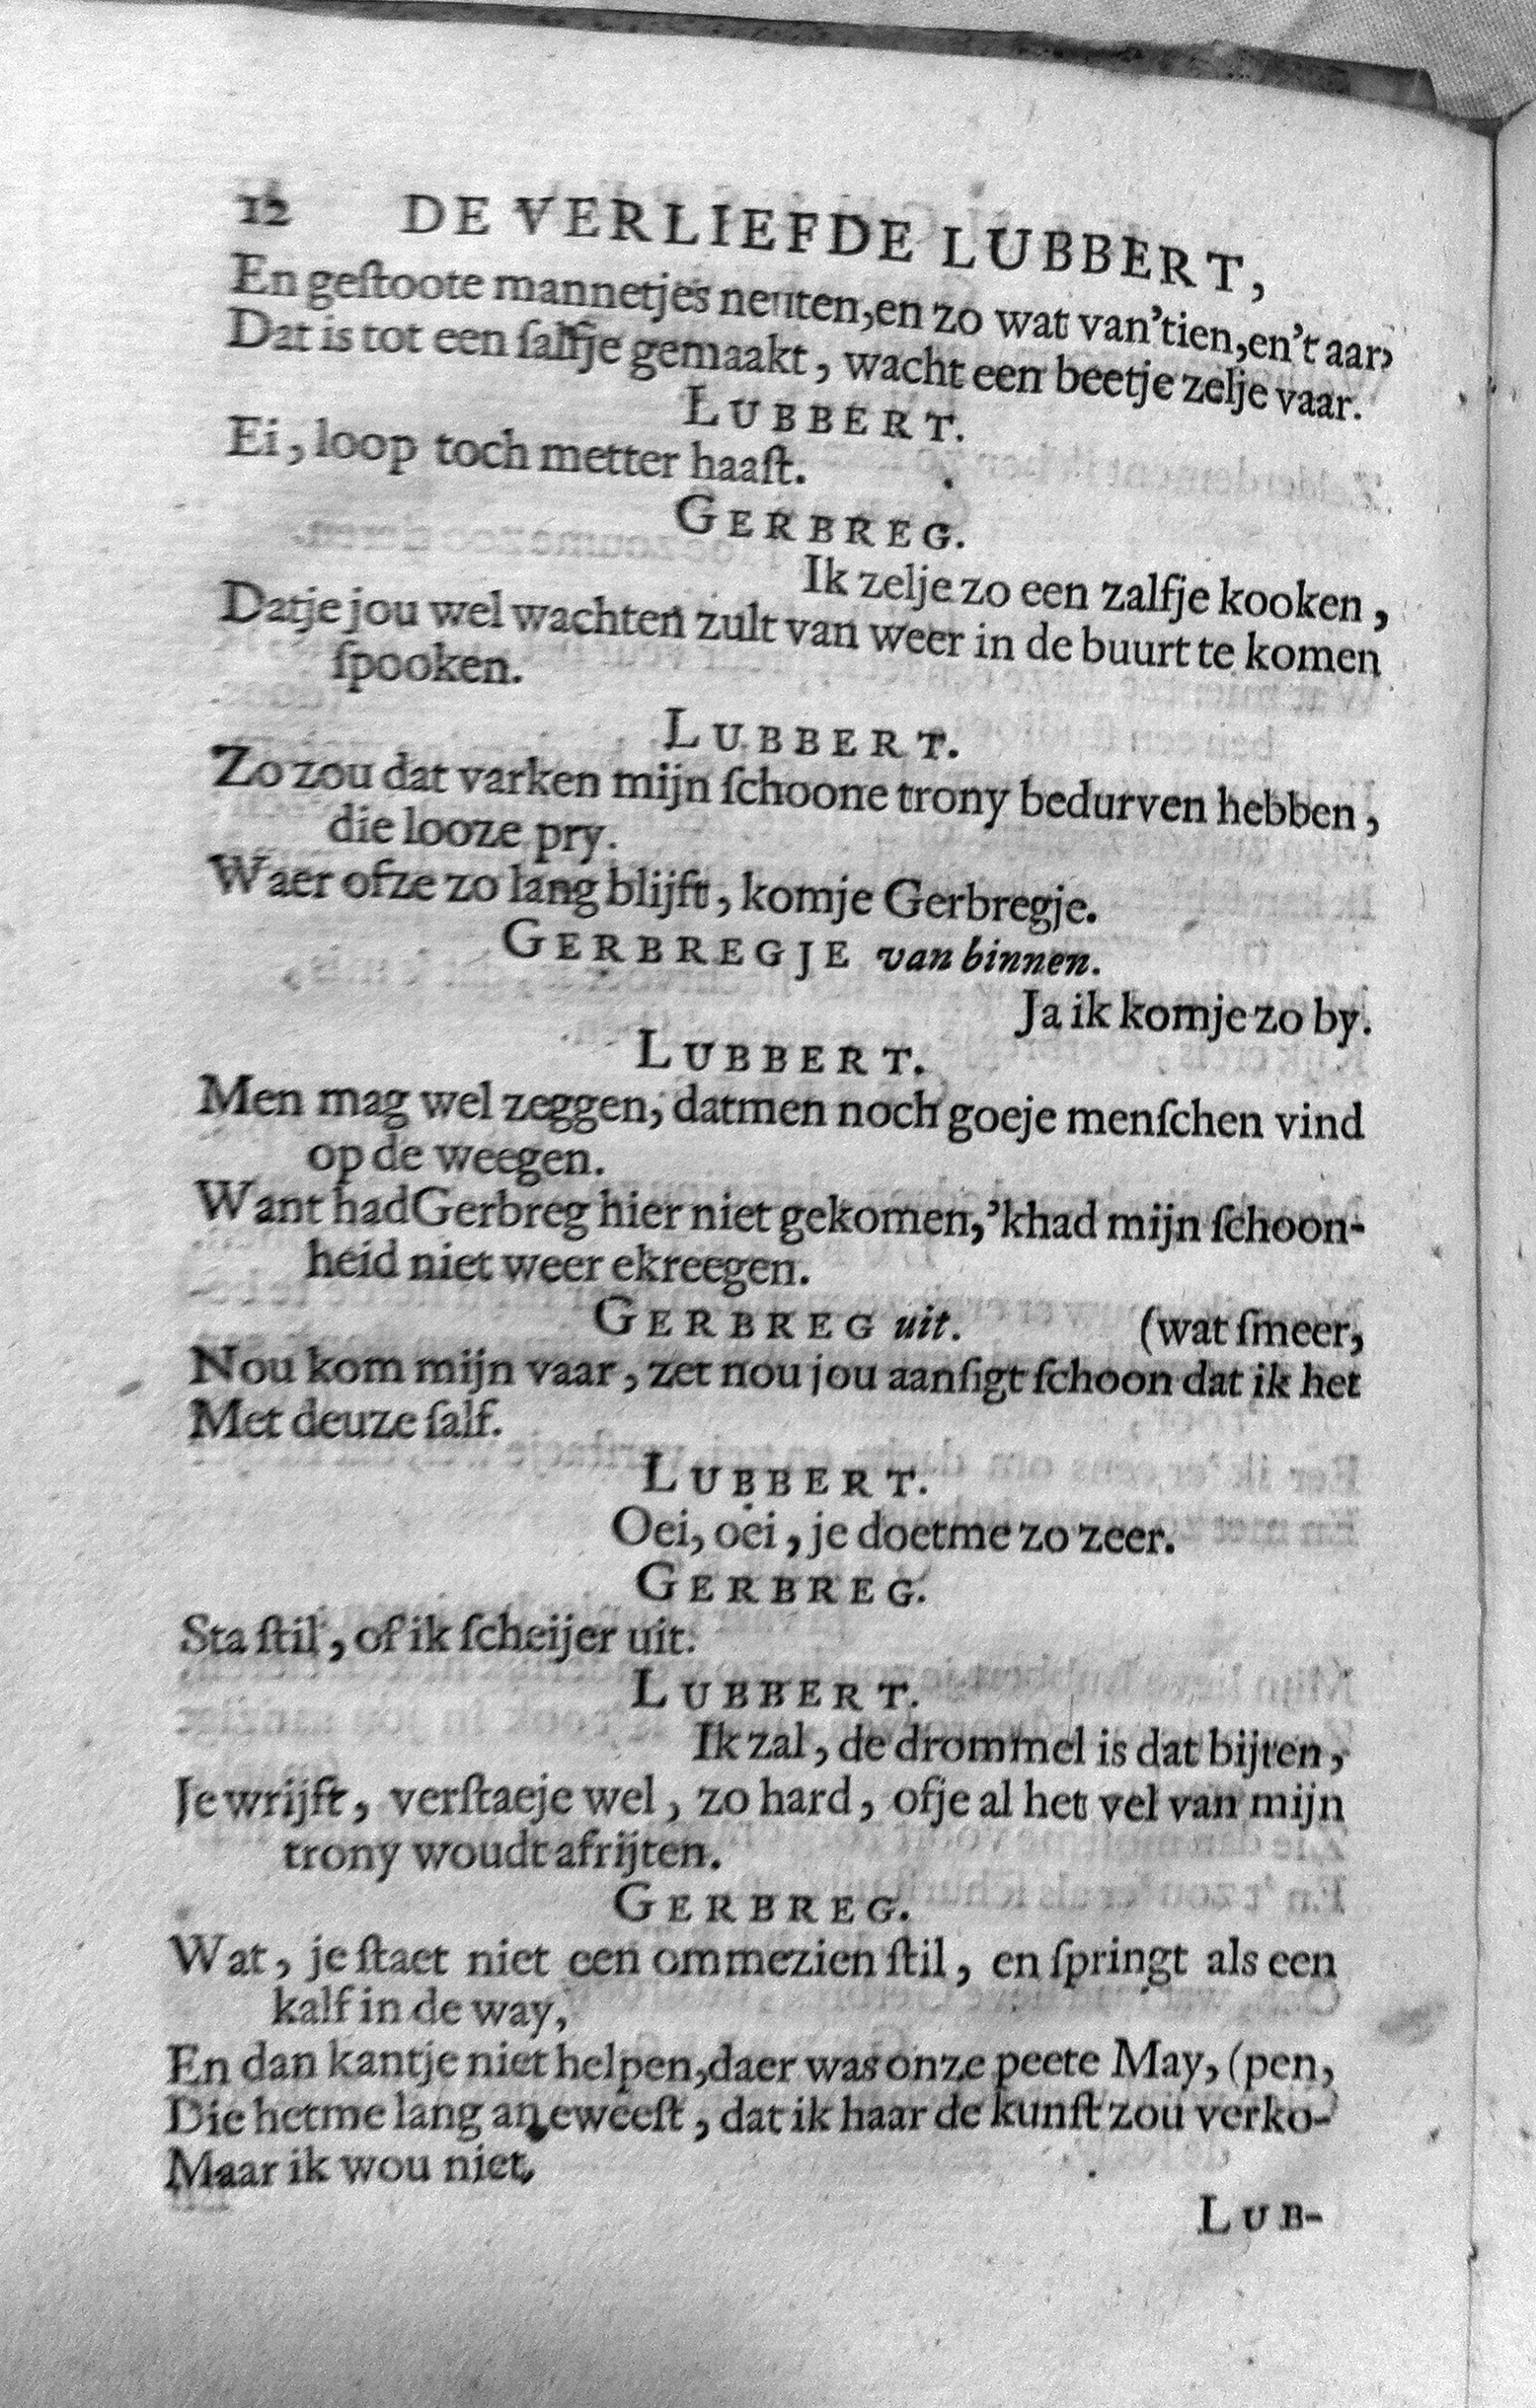 12 DE VERLIEFDE LUBBERT,
En geſtoote mannetjes neuten,en zo wat van'tien,en't aar,
Dat is tot een ſalfje gemaakt, wacht een beetje zelje vaar.
LUBBERT.
Ei, loop toch metter haaſt.
GERBREG.
Ik zelje zo een zalfje kooken,
Datje jou wel wachten zult van weer in de buurt te komen
ſpooken.
LUBBERT.
Zo zou dat varken mijn ſchoone trony bedurven hebben,
die looze pry.
Waer ofze zo lang blijft, komje Gerbregje.
GERBREGJE van binnen.
Ja ik komje zo by.
LUBBERT.
Men mag wel zeggen, datmen noch goeje menſchen vind
op de weegen.
Want had Gerbreg hier niet gekomen,'khad mijn ſchoon-
heid niet weer ekreegen.
GERBREG uit. (wat ſmeer,
Nou kom mijn vaar, zet nou jou aanſigt ſchoon dat ik het
Met deuze ſalf.
LUBBERT.
Oei, oei, je doetme zo zeer.
GERBREG.
Sta ſtil, of ik ſcheijer uit.
LUBBERT.
Ik zal, de drommel is dat bijten,
Je wrijft, verſtaeje wel, zo hard, ofje al het vel van mijn
trony woudt afrijten.
GERBREG.
Wat, je ſtaet niet een ommezien ſtil, en ſpringt als een
kalf in de way,
En dan kantje niet helpen,daer was onze peete May, (pen,
Die hetme lang aneweeſt, dat ik haar de kunſt zou verko-
Maar ik wou niet,
LUB-